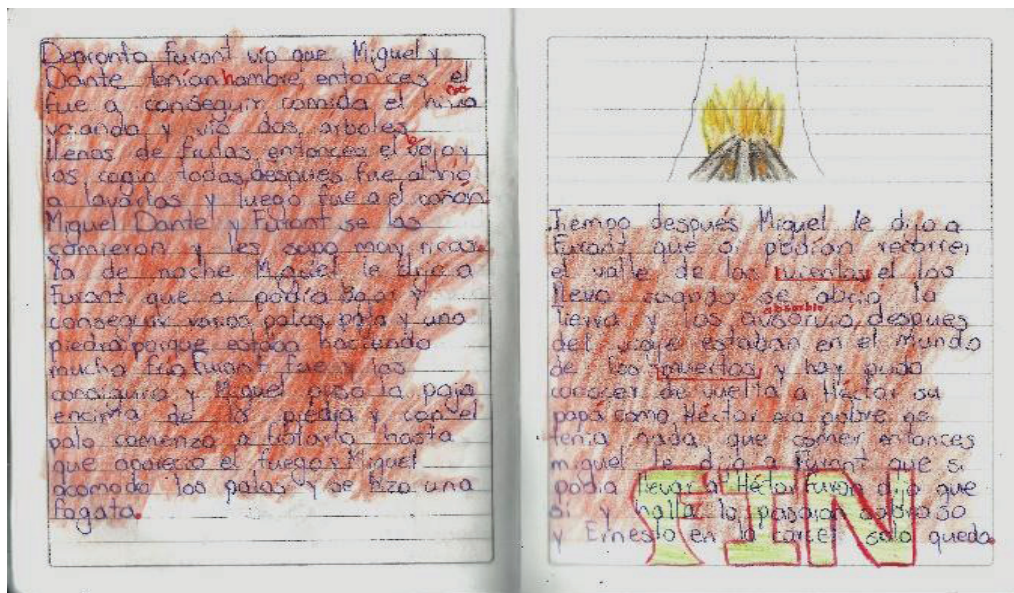 Depronto Furant vio que Miguel y
Dante tenían hambre entonces el
fue a conseguir comida el hiva
volando y vio dos arboles
llenos de frutas entonces el bajo y
las cogio todas despues fue al rio
a lavarlas y luego fue a el cañón
Miguel Dante y Furant se las
comieron y les supo muy ricas.
Ya de noche Miguel le dijo a
Furant que si podía bajar y
conseguir varios palos paja y una
piedra porque estaba haciendo
mucho frio Furant fue y los
consiguio y Miguel puso la paja
encima de la piedra y con el
palo comenzo a frotarlo hasta
que aparecio el fuego y Miguel
acomodo los palos y se izo una
fogata.
Tiempo después Miguel le dijo a
Furant que si podían recorrer
el valle de los muertos el los
llevo cuando se abrio la
absorbio
tierra y los ausorvio, despues
del viaje estaban en el mundo
de los muertos y hay pudo
conocer de vuelta a Héctor su
papá como Héctor era pobre no
tenia nada que comer entonces
miguel le dijo a Furant que si
podia llevar a Héctor Furan dijo que
si y halla lo pasaron
y Ernesto en la carcel solo queda.
FIN